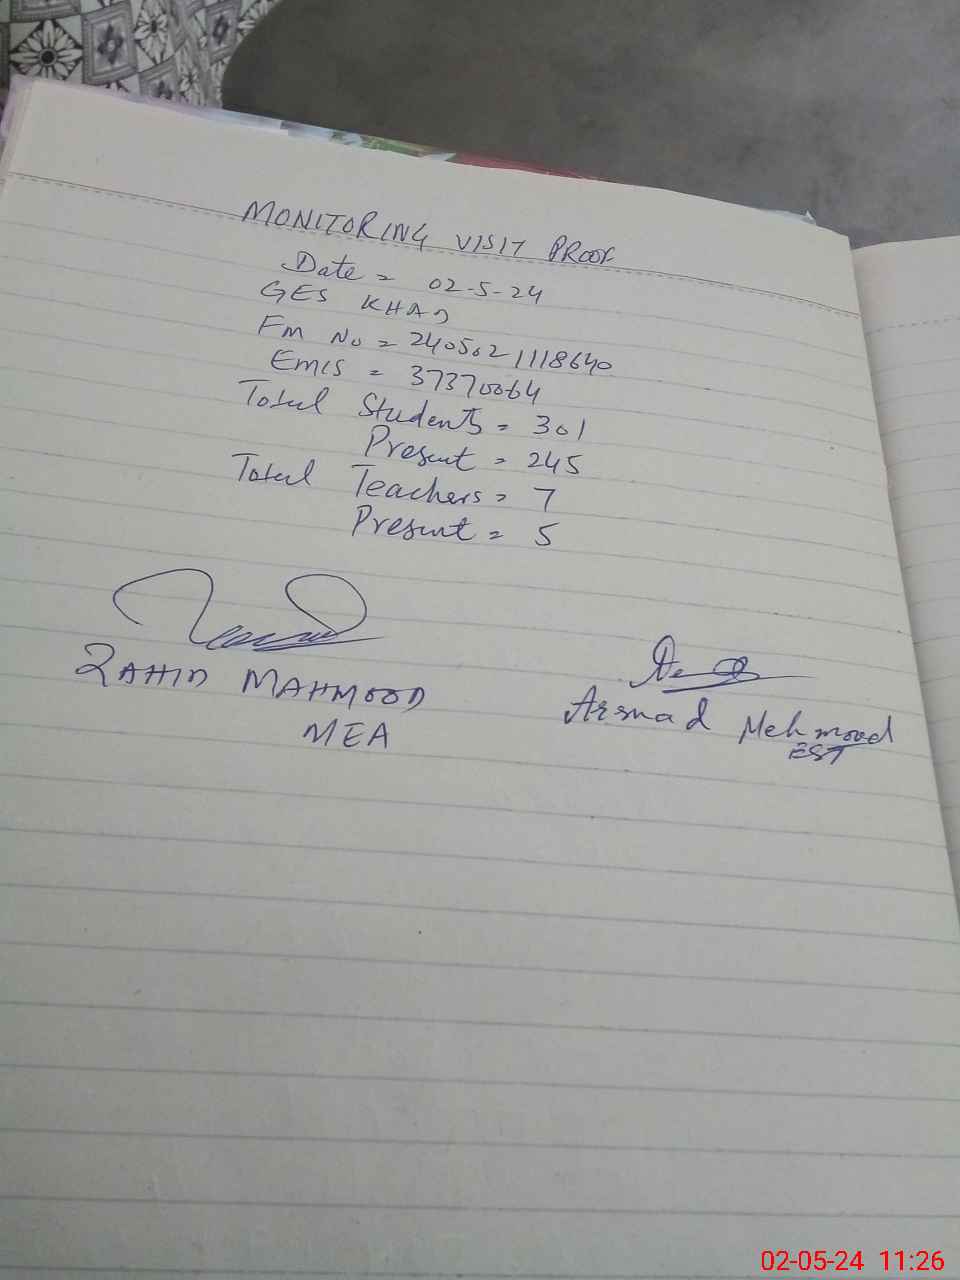 MONITORING VISIT PROOF
Date = 02-5-24
GES KHAD
Fm No = 2405021118640
Emis = 37370064
Total Students = 301
Present = 245
Total Teachers = 7
Present = 5
ZAHID MAHMOOD
MEA
Arshad Mehmood
EST
02-05-24 11:26